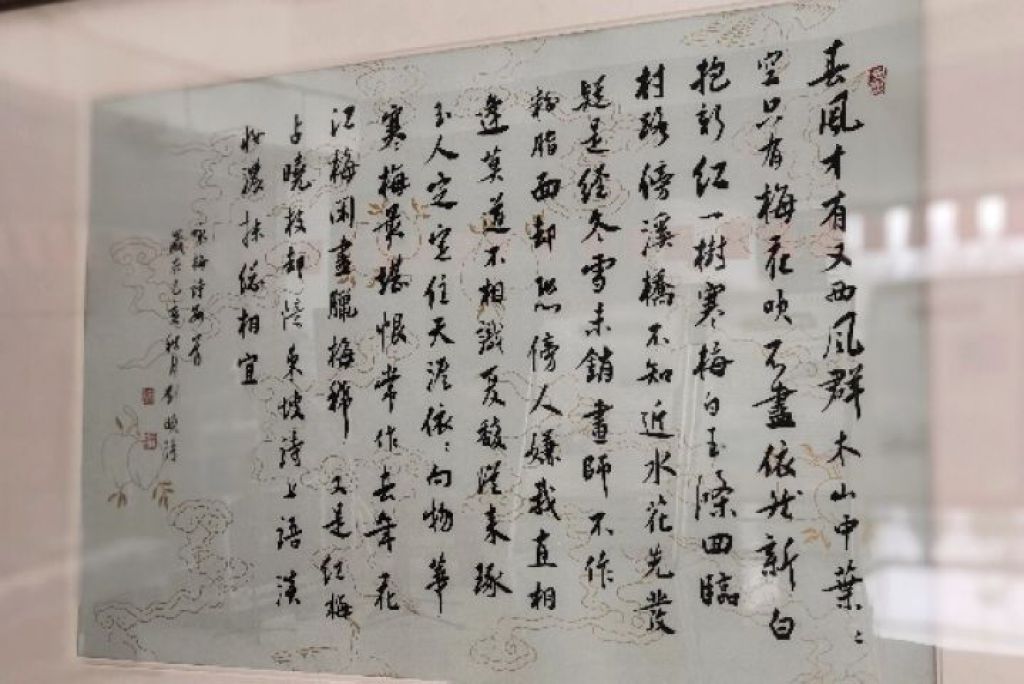 春風才有又西風群木山中葉〻
空只有梅花吹不盡依然新白
抱新紅一樹寒梅白玉條囬臨
村路傍溪橋不知近水花先發
疑是經冬雪未銷畫師不作
粉脂面却恐傍人嫌我直相
逢莫道不相識夏馥從來琢
玉人定定住天涯依〻向物華
寒梅最堪恨常作去年花
江梅開盡臘梅稀又是紅梅
占曉枝却憶東坡詩上語淡
妝濃抹總相宜
咏梅詩五首
歲在己亥秋月